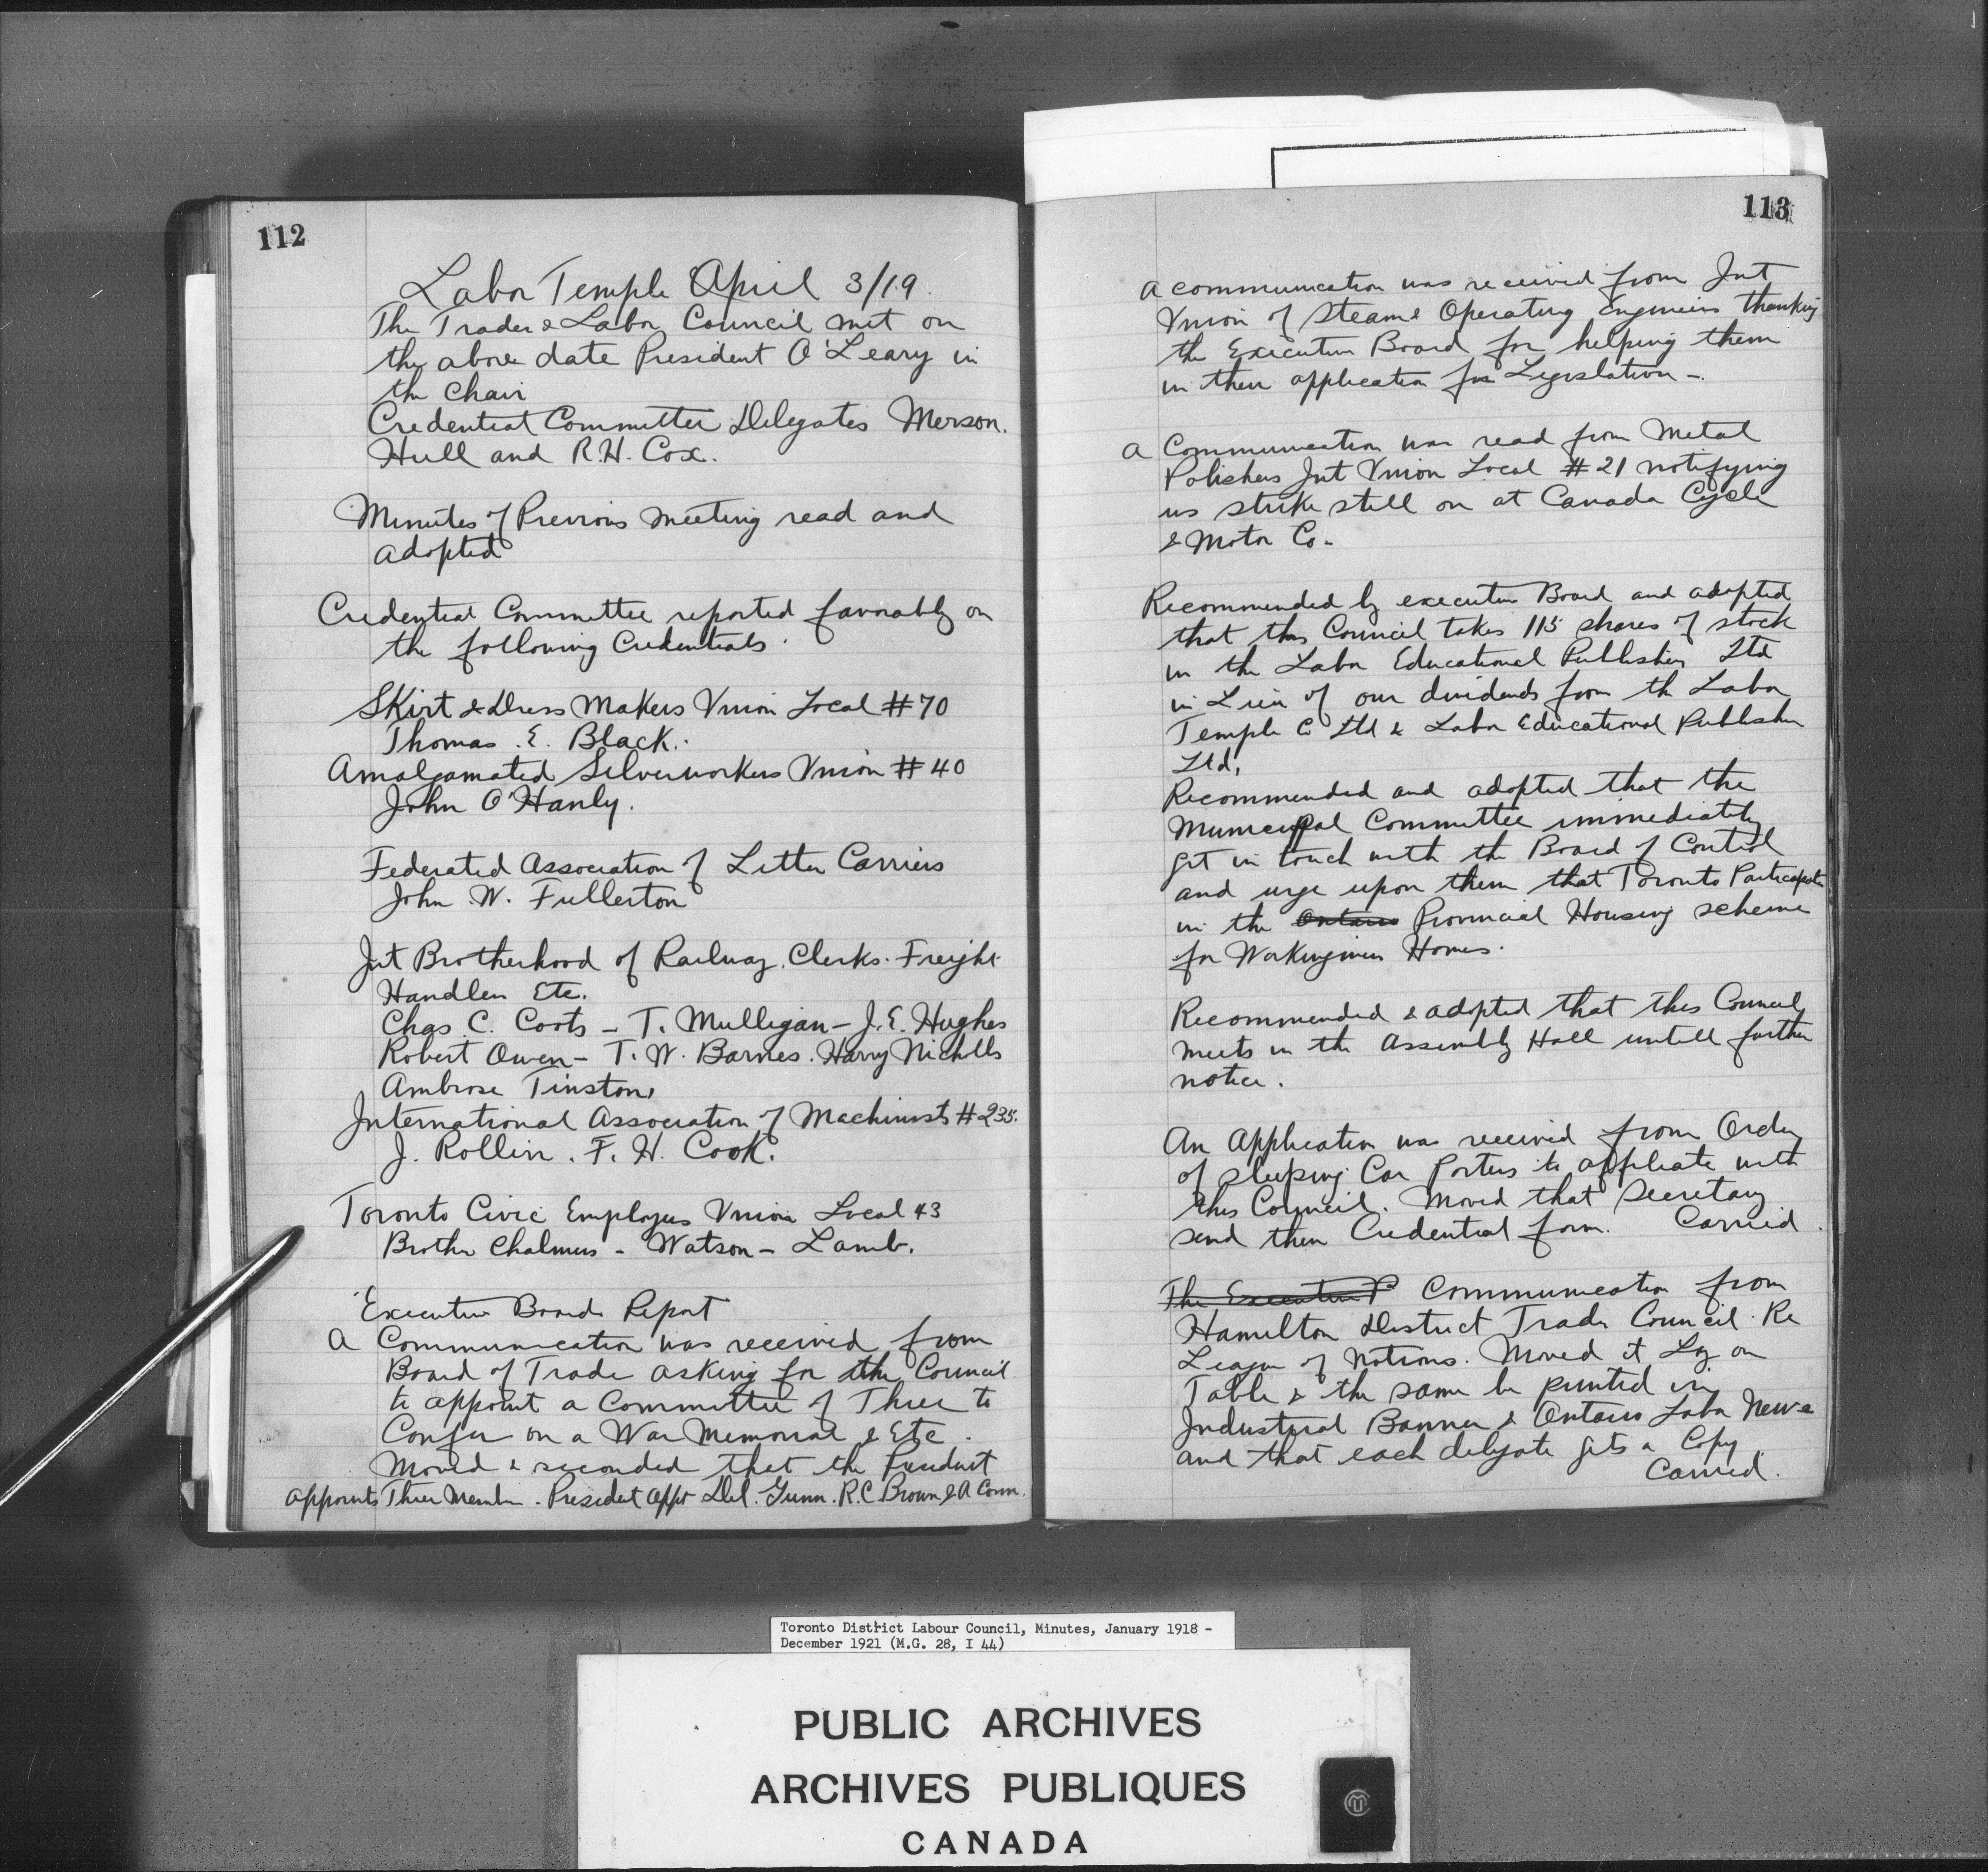 112
Labor Temple April 3/19.
The Trades & Labor Council met on
the above date President O'Leary in
the Chair
Credential Committee Delegates Merson.
Hull and R.H. Cox.
Minutes of Previous Meeting read and
adopted
Credential Committee reported favorably on
the following Credentials.
Skirt & Dress Makers Union Local #70
Thomas. E. Black.
Amalgamated Silverworkers Union #40
John O'Hanly.
Federated Association of Letter Carriers
John W. Fullerton
Int Brotherhood of Railway. Clerks. Freight
Handlers Etc.
Chas. C. Coots - T. Mulligan - J.E. Hughes
Robert Owen - T.W. Barnes. Harry Nicholls
Ambrose Tinston,
International Association of Machinists #235.
J. Rollin. F.H. Cook.
Toronto Civic Employees Union Local 43
Brother Chalmers - Watson - Lamb.
Executive Boards Report
A Communication was received from
Board of Trade asking for the Council
to appoint a Committee of Three to
Confer on a War Memorial & Etc.
Moved & seconded that the President
appoints Three Members. President appt Del. Gunn. R.C. Brown & A Conn.
113
A communication was received from Int
Union of Steam & Operating Engineers thanking
the Executive Board for helping them
in their application for Legislation -.
A Communication was read from Metal
Polishers Int Union Local #21 notifying
us strike still on at Canada Cycle
& Motor Co-
Recommended by executive Board and adopted
that this Council takes 115 shares of stock
in the Labor Educational Publishers Ltd
in Lieu of our dividends from the Labor
Temple Co Ltd & Labor Educational Publisher
Ltd,
Recommended and adopted that the
Municipal Committee immediately
get in touch with the Board of Control
and urge upon them that Toronto Participates
in the Ontario Provincial Housing scheme
for Workingmen Homes.
Recommended & adopted that this Council
meets in the Assembly Hall untill further
notice.
An Application was received from Order
of Sleeping Car Porters to affiliate with
this Council. Moved that Secretary
send them Credential form. Carried.
The Executive Communication from
Hamilton District Trades Council. Re
League of Nations. Moved it Lay on
Table & the same be printed in
Industrial Banner & Ontario Labor News
and that each delegate gets a Copy.
Carried.
Toronto District Labour Council, Minutes, January 1918 -
December 1921 (M.G. 28, I 44)
PUBLIC ARCHIVES
ARCHIVES PUBLIQUES
CANADA